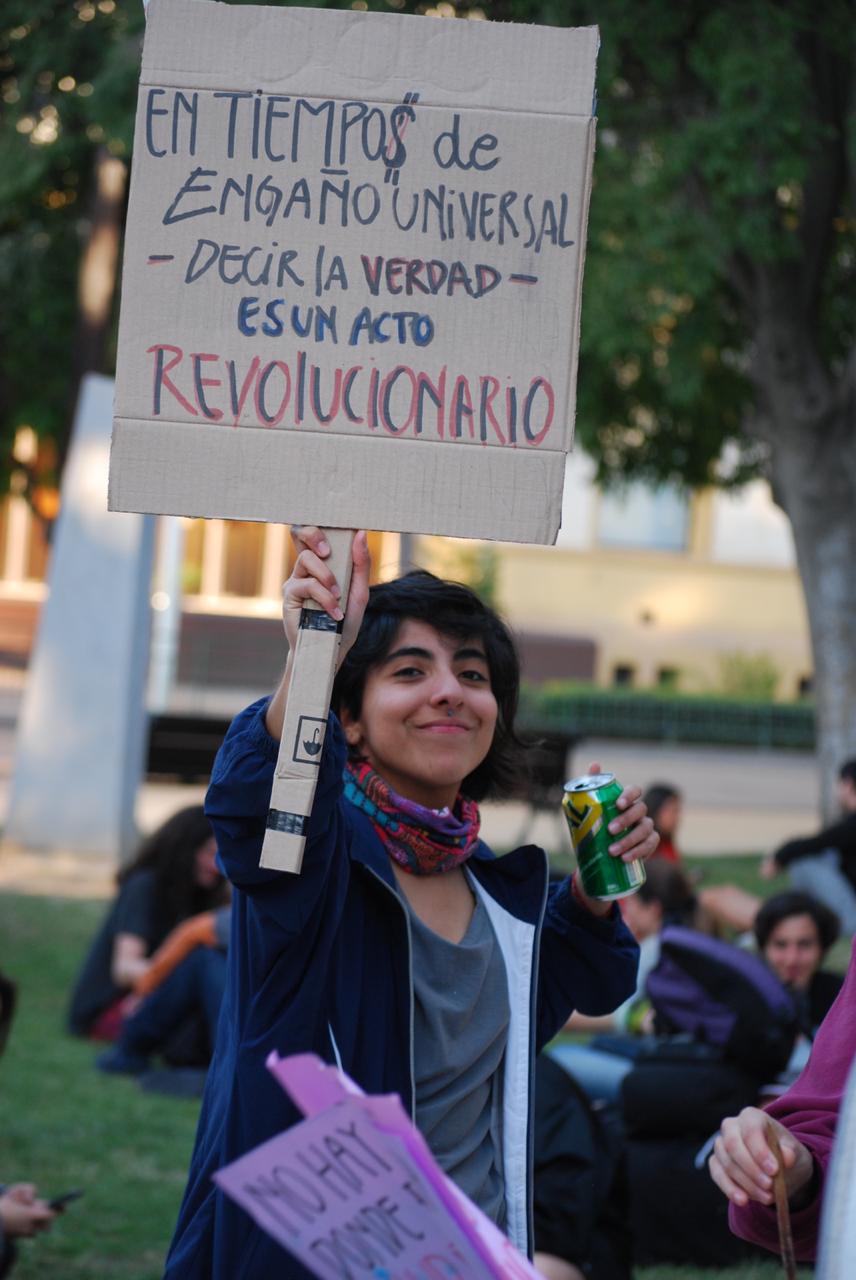 EN TIEMPO$ de
ENGAÑO "UNIVERSAL
- DECIR lA VERDAD -
ES UN ACTO
REVOlUCIONARIO
NO HAY
DONDE